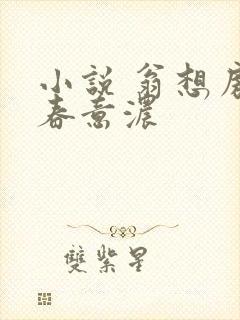 小説 翁想
春意濃
雙紫星